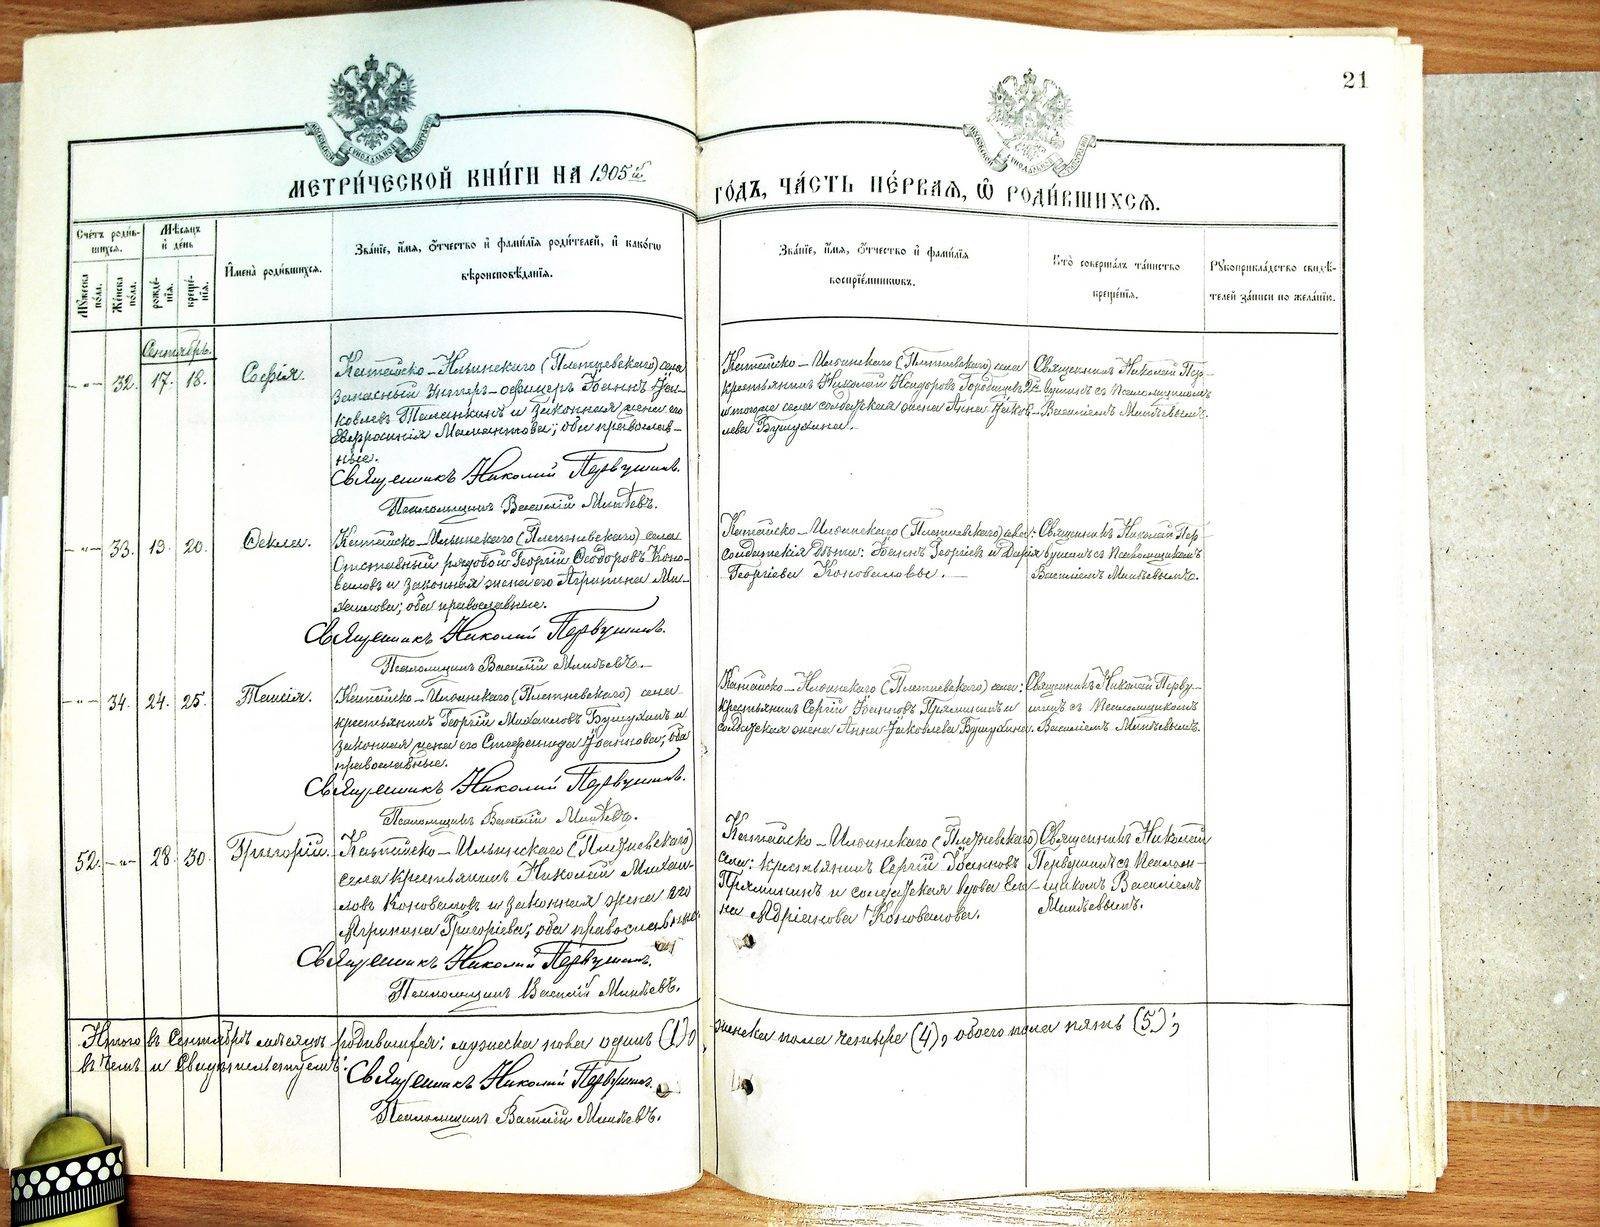 21
МОСКОВСКОЙ СѴНОДАЛЬНОЙ ТИПОГРАФІИ
МЕТРИ́ЧЕСКОЙ КНИ́ГИ НА 1905й
ГО́ДЪ, ЧА́СТЬ ПЕ́РВАЯ, Ѡ РОДИ́ВШИХСЯ.
Сче́тъ роди́в-
шихся.
Мѣ́сяцъ
и҆ де́нь
Мꙋ́жеска
по́ла.
Же́нска
по́ла.
рожде́-
нїѧ.
креще́-
нїѧ.
И҆мена̀ роди́вшихсѧ.
Зва́нїе, и҆́мѧ, ѻ҆́тчество и҆ фами́лїѧ роди́телей, и҆ како́гѡ
вѣроисповѣ́данїѧ.
Зва́нїе, и҆́мѧ, ѻ҆́тчество и҆ фами́лїѧ
воспрїе́мникѡвъ.
Кто̀ соверша́лъ та́инство
креще́нїѧ.
Рꙋкоприкла́дство свидѣ́-
телей за́писи по жела́нїю.
Сентябрь.
-"- 32. 17. 18. Софія.
Китайско-Ильинскаго (Плетневскаго) села
запасный Унтеръ-офицеръ Іоаннъ Іа-
ковлевъ и законная жена его
Евфросинія Мамантова; оба православ-
ные.
Священникъ Николай Первушинъ.
Псаломщикъ Василій Минѣевъ.
Китайско-Ильинскаго (Плетневскаго) села
крестьянинъ Николай
и тогоже села солдатская жена Анна Іаков-
лева Бушухина.
Священникъ Николай Пер-
вушинъ съ Псаломщикомъ
Василіемъ Минѣевымъ.
-"- 33. 19. 20. Ѳекла.
Китайско-Ильинскаго (Плетневскаго) села
Отставный рядовой Георгій Ѳеодоровъ Коно-
валовъ и законная жена его Агрипина Ми-
хаилова; оба православные.
Священникъ Николай Первушинъ.
Псаломщикъ Василій Минѣевъ.
Китайско-Ильинскаго (Плетневскаго) села:
солдатскія дѣти: Іоаннъ Георгіевъ и Дарія
Георгіева Коноваловы.
Священникъ Николай Пер-
вушинъ съ Псаломщикомъ
Василіемъ Минѣевымъ.
-"- 34. 24. 25. Таисія.
Китайско-Ильинскаго (Плетневскаго) села
крестьянинъ Георгій Михаиловъ Бушухинъ и
законная жена его Стефанида Іоаннова; оба
православные.
Священникъ Николай Первушинъ.
Псаломщикъ Василій Минѣевъ.
Китайско-Ильинскаго (Плетневскаго) села:
крестьянинъ Сергій Іоанновъ Прямикинъ и
солдатская жена Анна Іаковлева Бушухина.
Священникъ Николай Перву-
шинъ съ Псаломщикомъ
Василіемъ Минѣевымъ.
52. -"- 28. 30. Григорій.
Китайско-Ильинскаго (Плетневскаго)
села крестьянинъ Николай Михаи-
ловъ Коноваловъ и законная жена его
Агрипина Григоріева; оба православные.
Священникъ Николай Первушинъ.
Псаломщикъ Василій Минѣевъ.
Китайско-Ильинскаго (Плетневскаго)
села: крестьянинъ Сергій Іоанновъ
Прямикинъ и солдатская вдова Еле-
на Адріанова Коновалова.
Священникъ Николай
Первушинъ съ Псалом-
щикомъ Василіемъ
Минѣевымъ.
Итого въ Сентябрѣ мѣсяцѣ родившихся: мужеска пола одинъ (1),
женска пола четыре (4), обоего пола пять (5);
въ чемъ и свидѣтельствуемъ:
Священникъ Николай Первушинъ.
Псаломщикъ Василій Минѣевъ.